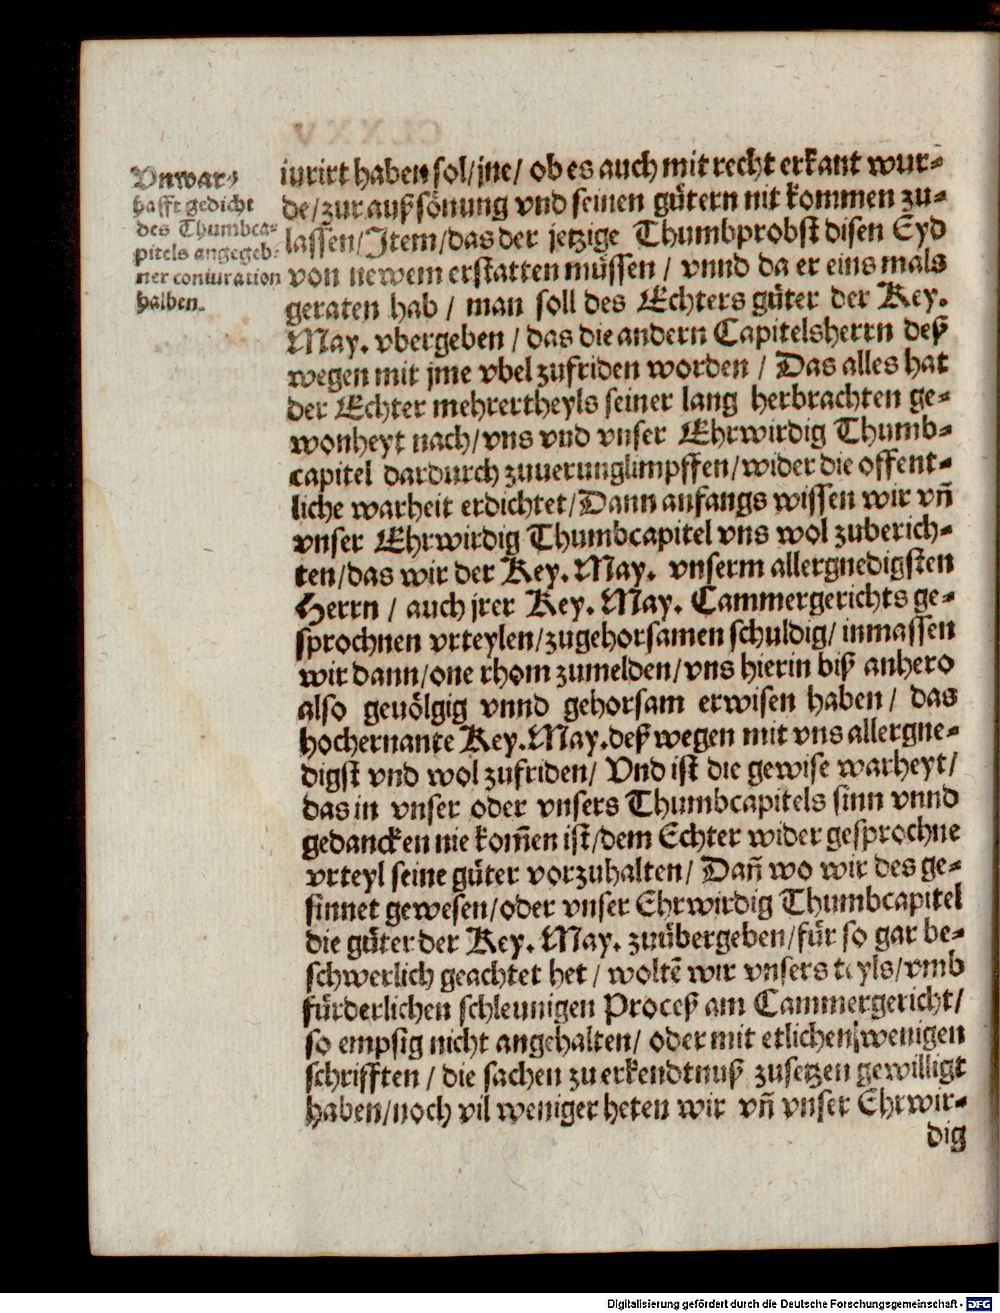 Vnwar-
hafft gedicht
des Thumbca-
pitels angegeb-
ner coniuration
halben.
iurirt haben sol/jne/ ob es auch mit recht erkant wur-
de/zur außsönung vnd seinen gütern nit kommen zu-
lassen/Item/das der jetzige Thumbprobst disen Eyd
von newem erstatten müssen / vnnd da er eins mals
geraten hab / man soll des Echters güter der Key.
May. vbergeben / das die andern Capitelsherrn deß
wegen mit jme vbel zufriden worden / Das alles hat
der Echter mehrertheyls seiner lang herbrachten ge-
wonheyt nach/vns vnd vnser Ehrwirdig Thumb-
capitel dardurch zuuerunglimpffen/wider die offent-
liche warheit erdichtet/Dann anfangs wissen wir vñ
vnser Ehrwirdig Thumbcapitel vns wol zuberich-
ten/das wir der Key. May. vnserm allergnedigsten
Herrn / auch jrer Key. May. Cammergerichts ge-
sprochnen vrteylen/zugehorsamen schuldig/ inmassen
wir dann/one rhom zumelden/vns hierin biß anhero
also geuölgig vnnd gehorsam erwisen haben / das
hochernante Key.May.deß wegen mit vns allergne-
digst vnd wol zufriden/ Vnd ist die gewise warheyt/
das in vnser oder vnsers Thumbcapitels sinn vnnd
gedancken nie kom̃en ist/dem Echter wider gesprochne
vrteyl seine güter vorzuhalten/ Dañ wo wir des ge-
sinnet gewesen/oder vnser Ehrwirdig Thumbcapitel
die güter der Key. May. zuübergeben/für so gar be-
schwerlich geachtet het / woltẽ wir vnsers teyls/vmb
fürderlichen schleunigen Proceß am Cammergericht/
so empsig nicht angehalten/ oder mit etlichen wenigen
schrifften / die sachen zu erkendtnuß zusetzen gewilligt
haben/noch vil weniger heten wir vñ vnser Ehrwir-
dig
Digitalisierung gefördert durch die Deutsche Forschungsgemeinschaft - DFG